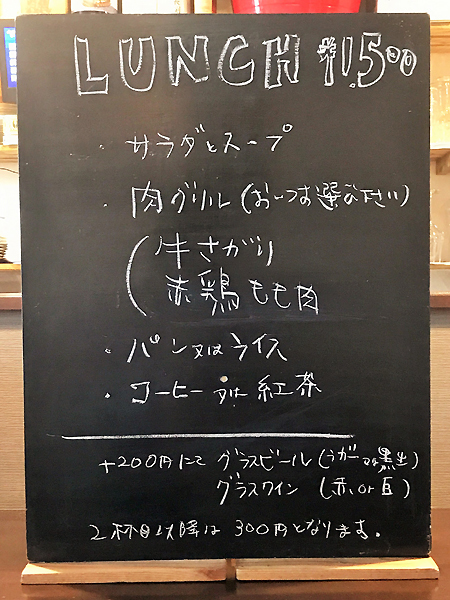 LUNCH ¥1.500
・サラダとスープ
・肉グリル(お一つお選び下さい)
牛さがり
赤鶏もも肉
・パン又はライス
・コーヒー又は紅茶
+200円にて グラスビール(ラガー又は黒生)
グラスワイン (赤 or 白)
2杯目以降は 300円となります。